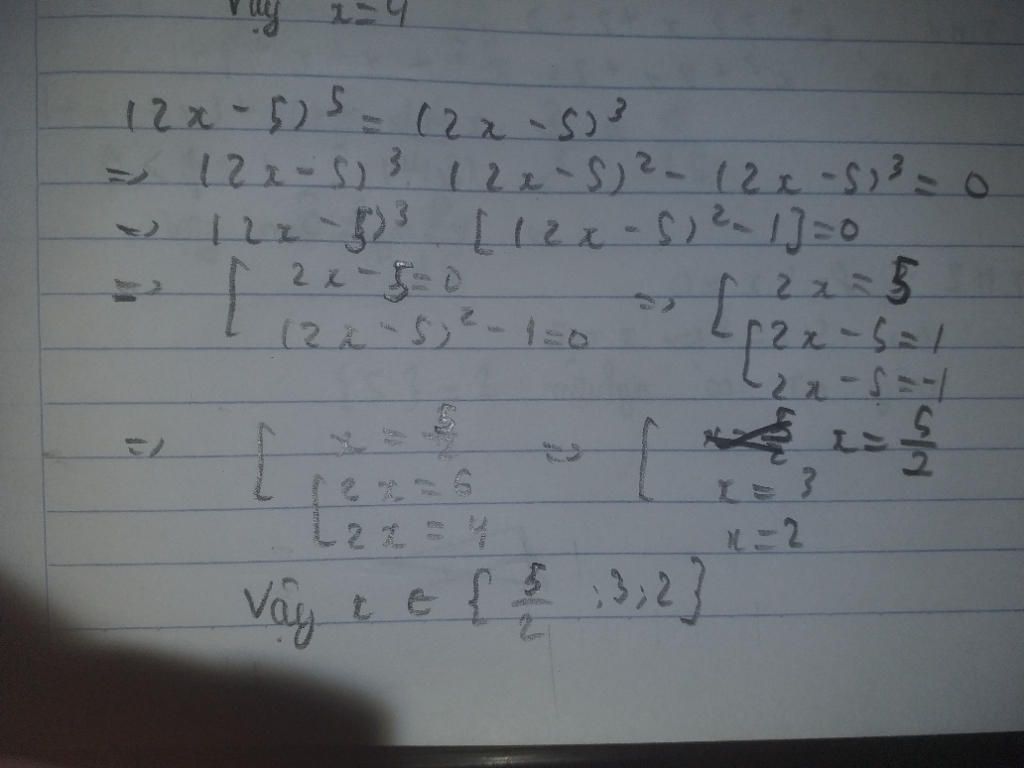 Vậy x=4
(2x-5)⁵ = (2x-5)³
=> (2x-5)³ (2x-5)² - (2x-5)³ = 0
=> (2x-5)³ [(2x-5)² - 1] = 0
=> [ 2x-5=0 => [ 2x = 5
(2x-5)² - 1 = 0 [ 2x-5=1
2x-5=-1
=> [ x = 5/2 => [ x = 5/2 x = 5/2
[ 2x = 6 x = 3
2x = 4 x = 2
Vậy x ∈ { 5/2 ; 3 ; 2 }